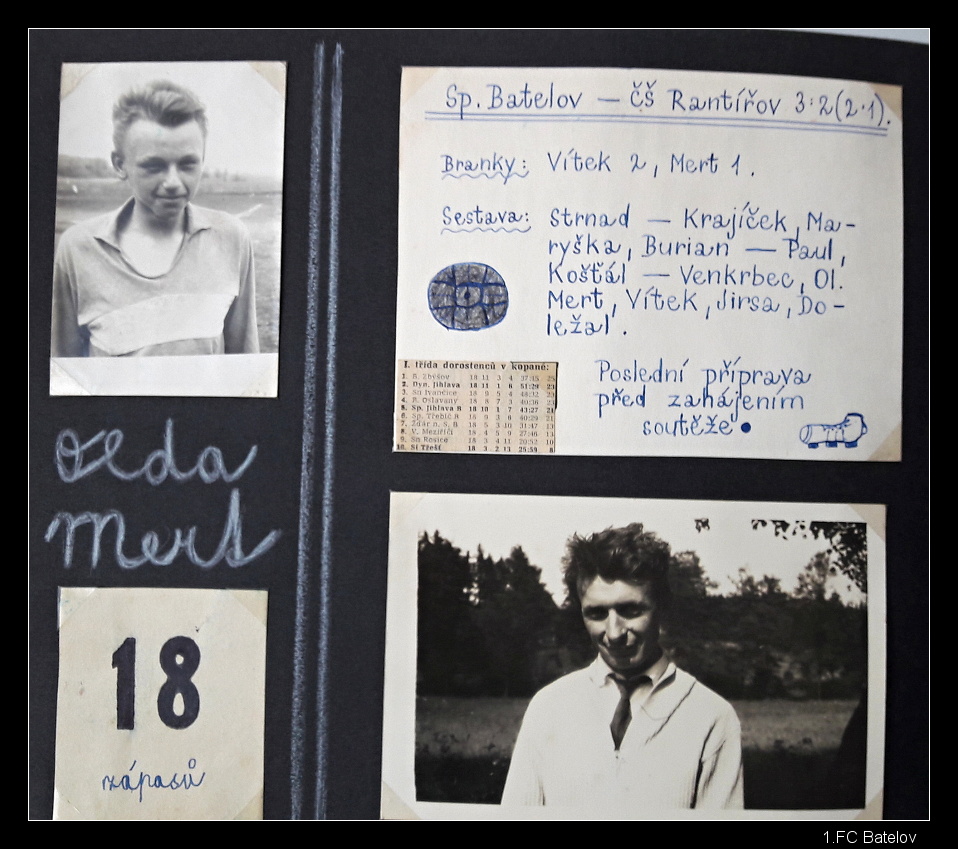 Olda
Mert
18
zápasů
Sp. Batelov — ČŠ Rantířov 3:2(2:1).
Branky: Vítek 2, Mert 1.
Sestava: Strnad — Krajíček, Ma-
ryška, Burian — Paul,
Košťál — Venkrbec, Ol.
Mert, Vítek, Jirsa, Do-
ležal.
I. třída dorostenců v kopané:
1. B. Zbýšov 18 11 3 4 37:15 25
2. Dyn. Jihlava 18 11 1 6 51:29 23
3. Sn Ivančice 18 9 5 4 48:32 23
4. B. Oslavany 18 8 7 3 40:36 23
5. Sp. Jihlava B 18 10 1 7 43:27 21
6. Sp. Třebíč B 18 9 3 6 40:29 21
7. Žďár n. S. B 18 5 3 10 31:47 13
8. V. Meziříčí 18 4 5 9 27:46 13
9. Sn Rosice 18 3 4 11 20:52 10
10. Sl Třešť 18 3 2 13 25:59 8
Poslední příprava
před zahájením
soutěže
1.FC Batelov